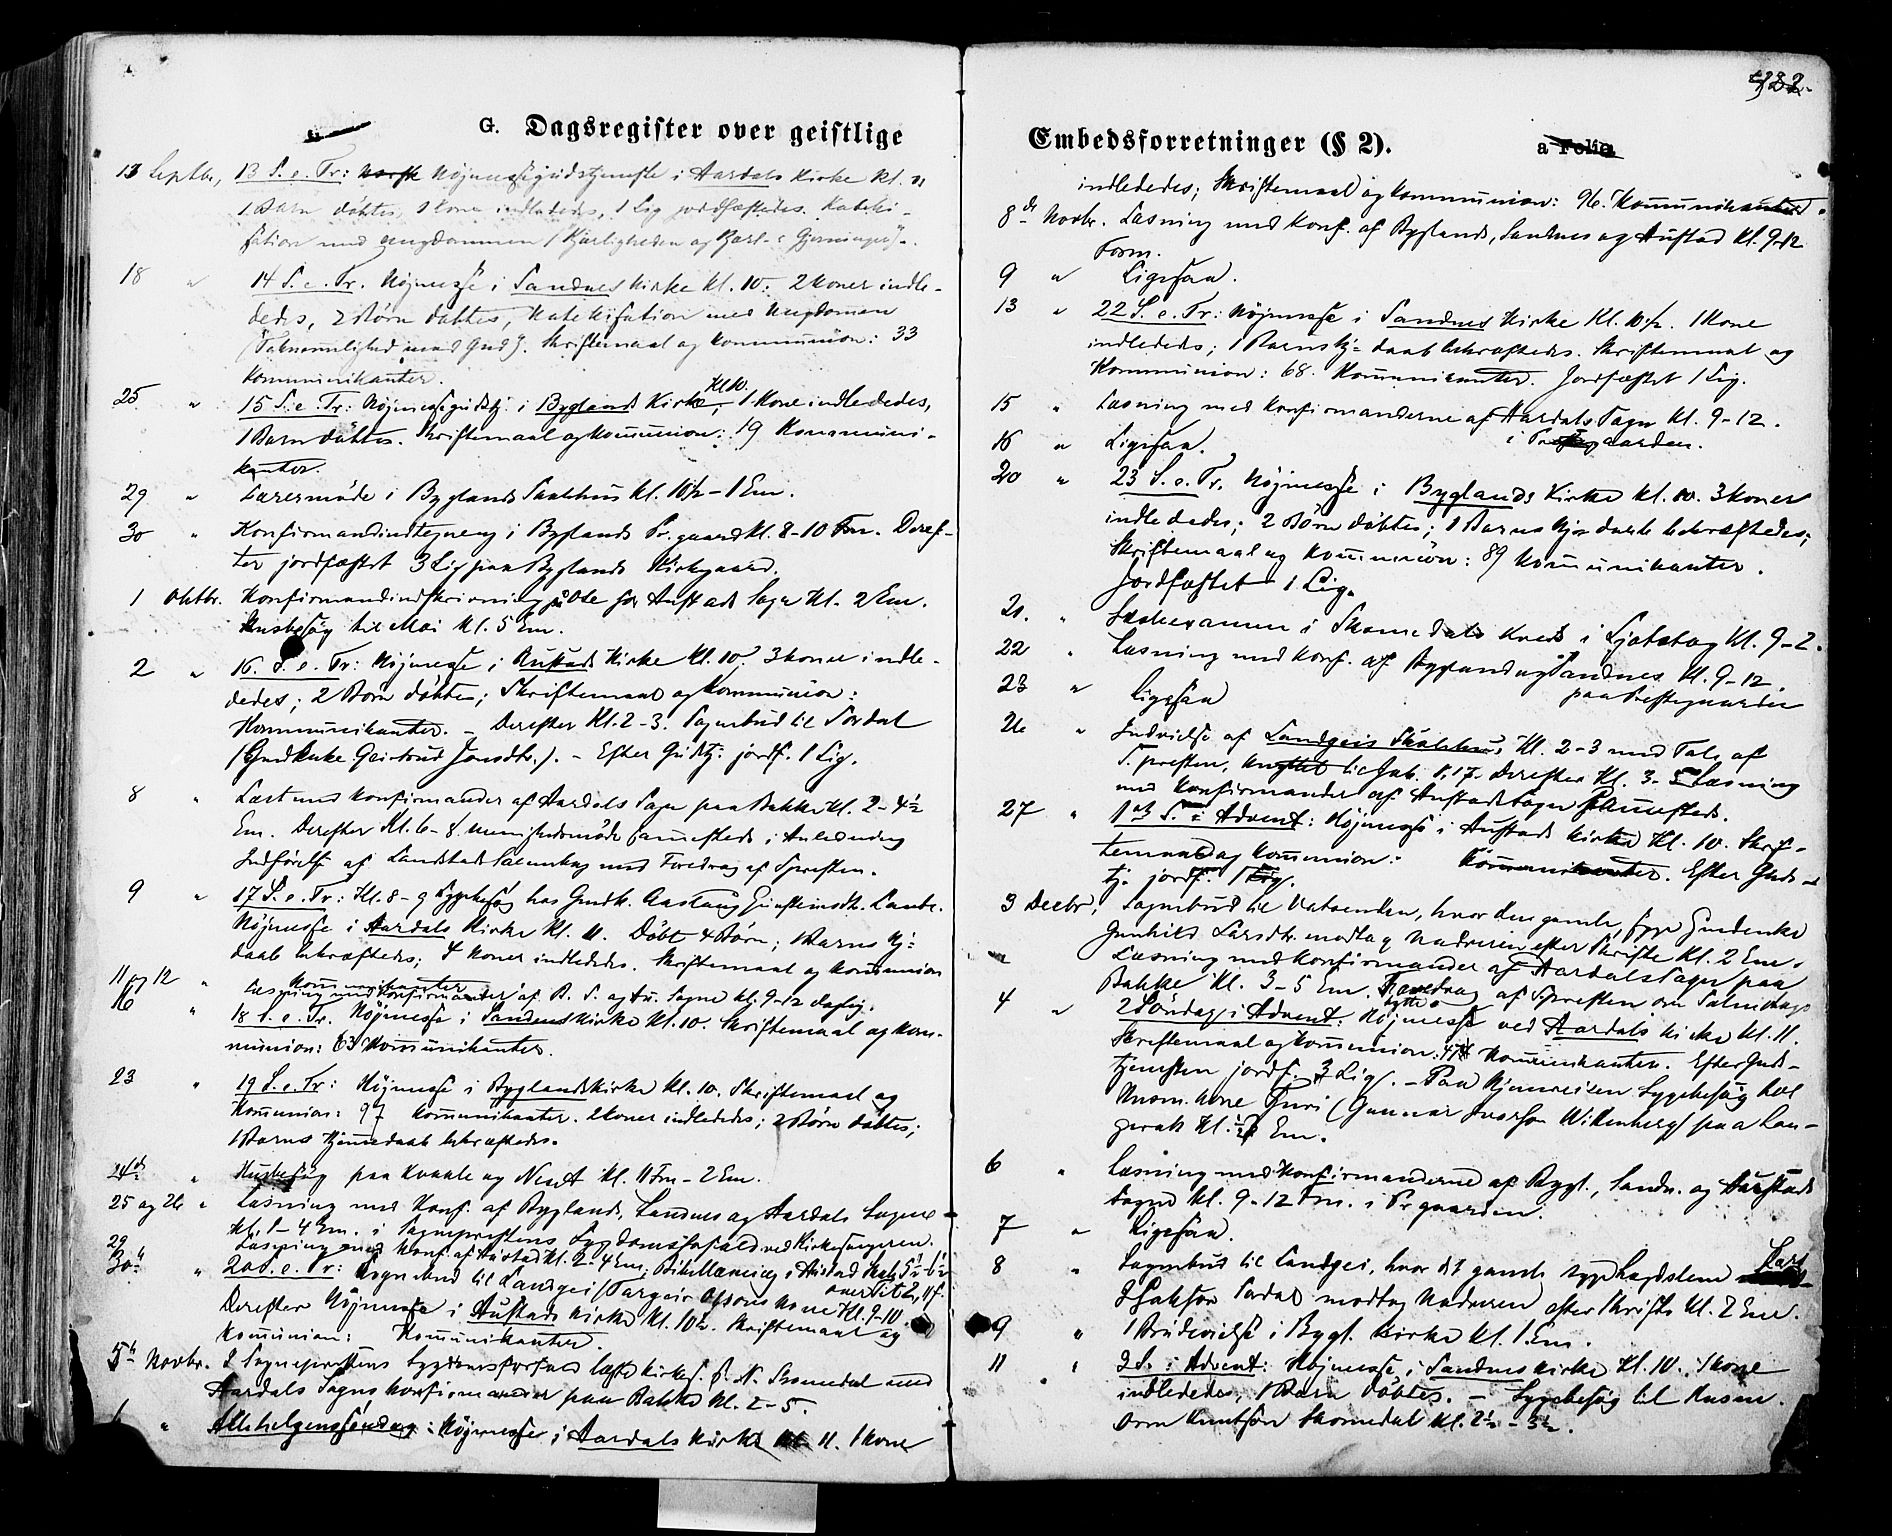 G. Dagsregister over geistlige
13 Septbr, 13 S. e. Tr: Højmessegudstjeneste i Aardals Kirke Kl. 11
1 Barn døbtes, 1 Kone indlededes, 1 Lig jordfæstedes. Kateki-
sation med ungdommen (Kjærligheden og Gjerninger).
18 " 14 S. e. Tr. Højmesse i Sandnes Kirke Kl. 10. 2 Koner indle-
dedes, 2 Børn døbtes, Katekisation med Ungdomen
(Taknemlighed mod Gud). Skriftemaal og Kommunion: 33
Kommunikanter.
25 " 15 S. e. Tr: Højmessegudstj. i Byglands Kirke, Kl. 10. 1 Kone indlededes,
1 Barn døbtes. Skriftemaal og Kommunion: 19 Kommuni-
kanter.
29 " Lærermøde i Byglands Skolehus Kl. 10½ - 1 Em.
30 " Konfirmandindtegning i Byglands Pr.gaard Kl. 8-10 Fm. Deref-
ter jordfæstet 3 Lig paa Byglands Kirkegaard.
1 Oktbr. Konfirmandindskrivning på Ose for Austads Sogn Kl. 2 Em.
Husbesøg til Moi Kl. 5 Em.
2 " 16. S. e. Tr: Højmesse i Austads Kirke Kl. 10. 3 Koner indle-
dedes; 2 Børn døbtes; Skriftemaal og Kommunion:
Kommunikanter. - Derefter Kl. 2-3. Sognebud til Sordal
(Gmdkuke Geirtrud Jonsdtr.). - Efter Gudstj. jordf. 1 Lig.
8 " Læst med Konfirmander af Aardals Sogn paa Bakke Kl. 2-4½
Em. Derefter Kl. 6-8. menighedsmøde sammesteds i Anledning
Indførelse af Landstads Salmebog med Foredrag af Spresten.
9 " 17 S. e. Tr: Kl. 8-9 Sygebesøg hos Gmdk. Aaslaug
Højmesse i Aardals Kirke Kl. 11. Døbt 4 Børn; 1 Barns Hj=
daab bekræftedes; 4 Koner indlededes. Skriftemaal og Kommunion
Kommunikanter.
11 og 12 " Læsning med Konfirmanter af B. S. og Au. Sogne Kl. 9-12 daglig.
16 " 18 S. e. Tr. Højmesse i Sandnes Kirke Kl. 10. Skriftemaal og Kom-
munion: 63 Kommunikanter.
23 " 19 S. e. Tr: Højmesse i Byglands Kirke Kl. 10. Skriftemaal og
Kommunion: 97 Kommunikanter. 2 Koner indlededes; 2 Børn døbtes;
1 Barns Hjemmedaab bekræftedes.
24de " Husbesøg paa Kvaale og Neset Kl. 11 Fm - 2 Em.
25 og 26 " Læsning med Konf. af Byglands, Sandnes og Aardals Sogne
Kl. 1-4 Em. i Sogneprestens Sygdomsforfald ved Kirkesangeren.
29 Læsning med Konf. af Austad Kl. 2-4 Em; Bibellæsning i Austad Skole 5½-6½
over Tit. 2, 11 f.
30te " 20 S. e. Tr: Sognebud til Landgeis (Torgeir Olsons Kone Kl. 9-10.
Derefter Højmesse i Austads Kirke Kl. 10½. Skriftemaal og
Kommunion: Kommunikanter.
5te Novbr. I Sogneprestens Sygdomsforfald læste Kirkes. B. N. Skomedal med
Aardals Sogns Konfirmander paa Bakke Kl. 2-5.
6 " Allehelgenssøndag: Højmesse i Aardals Kirke Kl. 11. 1 Kone
Embedsforretninger (§ 2).
a Folio
indlededes; Skriftemaal og Kommunion: 96 Kommunikanter.
8de Novbr. Læsning med Konf. af Byglands, Sandnes og Austad Kl. 9-12
Form.
9 " Ligesaa.
13 " 22 S. e. Tr: Højmesse i Sandnes Kirke Kl. 10½. 1 Kone
indlededes; 1 Barns Hj=daab bekræftedes. Skriftemaal og
Kommunion: 68. Kommunikanter. Jordfæstet 1 Lig.
15 " Læsning med Konfirmanderne af Aardals Sogn Kl. 9-12.
i Prestegaarden.
16 " Ligesaa.
20 " 23 S. e. Tr. Højmesse i Byglands Kirke Kl. 10. 3 Koner
indlededes; 2 Børn døbtes; 1 Barns Hjedaab bekræftedes;
Skriftemaal og Kommunion: 89 Kommunikanter.
Jordfæstet 1 Lig.
21. " i Skomedals Kreds i Kl. 9-2.
22 " Læsning med Konf. af Bygland og Sandnes Kl. 9-12.
paa Prestegaarden
23 " Ligesaa
26 " Indvielse af Landgeis Skolehus Kl. 2-3 med Tale af
S.presten, knyttet til Jak. 1,17. Derefter Kl. 3-5 Læsning
med Konfirmander af Austads Sogn sammesteds.
27 " 1ste S. i Advent: Højmesse i Austads Kirke Kl. 10. Skrif-
temaal og Kommunion: Kommunikanter. Efter Guds-
tj. jordf. 1 Lig.
3 Decbr, Sognebud til Vatsenden, hvor den gamle, syge Gmdenke
Gunhild Larsdtr. modtog Nadveren efter Skrifte Kl. 2 Em.
" Læsning med Konfirmander af Aardals Sogn paa
Bakke Kl. 3-5 Em. Foredrag af Spresten om Salmesang
4 " 2 Søndag i Advent: Højmesse ved Aardals Kirke Kl. 11.
Skriftemaal og Kommunion: 47 Kommunikanter. Efter Guds-
tjenesten jordf. 3 Lig. - Paa Hjemreisen Sygebesøg hos
Husm. Kone Guri (Gunnar Ivarson Wikenberg) paa Lau-
gerak Kl. Em.
6 " Læsning med Konfirmanderne af Bygl., Sandn. og Austads
Sogne Kl. 9-12 Fm. i Pr.gaarden.
7 " Ligesaa.
8 " Sognebud til Landgei, hvor det gamle syge Lægdslem
Sordal modtog Nadveren efter Skrifte Kl. 2 Em.
9 " 1 Brudevielse i Bygl. Kirke Kl. 1 Em.
11 " 3 S. i Advent: Højmesse i Sandnes Kirke Kl. 10. 1 Kone
indlededes; 1 Barn døbtes. - Sygebesøg til Husm.
Orm Knutson Skomedal Kl. 2½ - 3½.